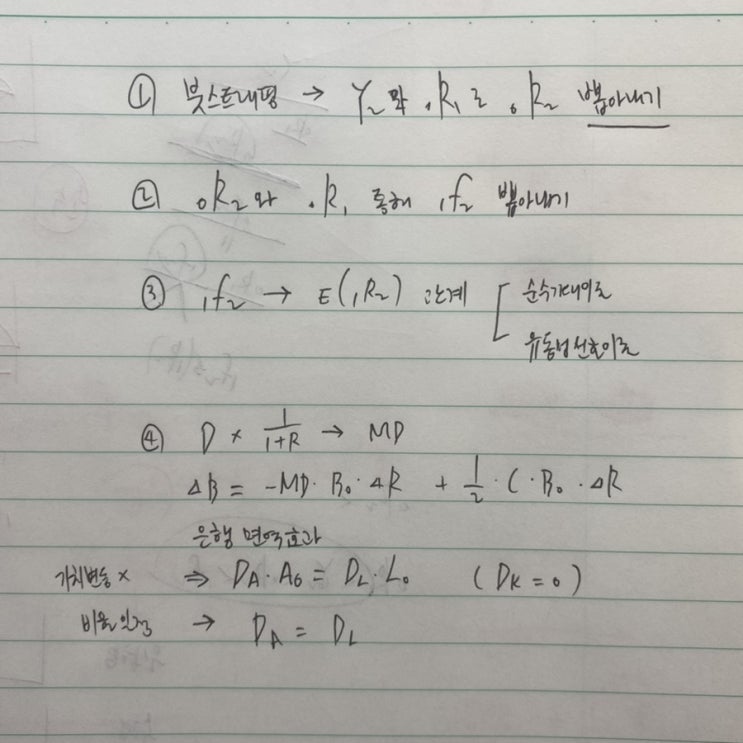 ① 붓스트래핑 → Y₂와 ₀R₁로 ₀R₂ 뽑아내기
② ₀R₂와 ₀R₁ 통해 ₁f₂ 뽑아내기
③ ₁f₂ → E(₁R₂) 관계 [ 순수기대이론
유동성선호이론
④ D × 1/(1+R) → MD
ΔB = -MD·B₀·ΔR + 1/2·C·B₀·ΔR
은행 면역효과
가치변동 x ⇒ D_A·A₀ = D_L·L₀ (D_K = 0)
비율일정 → D_A = D_L